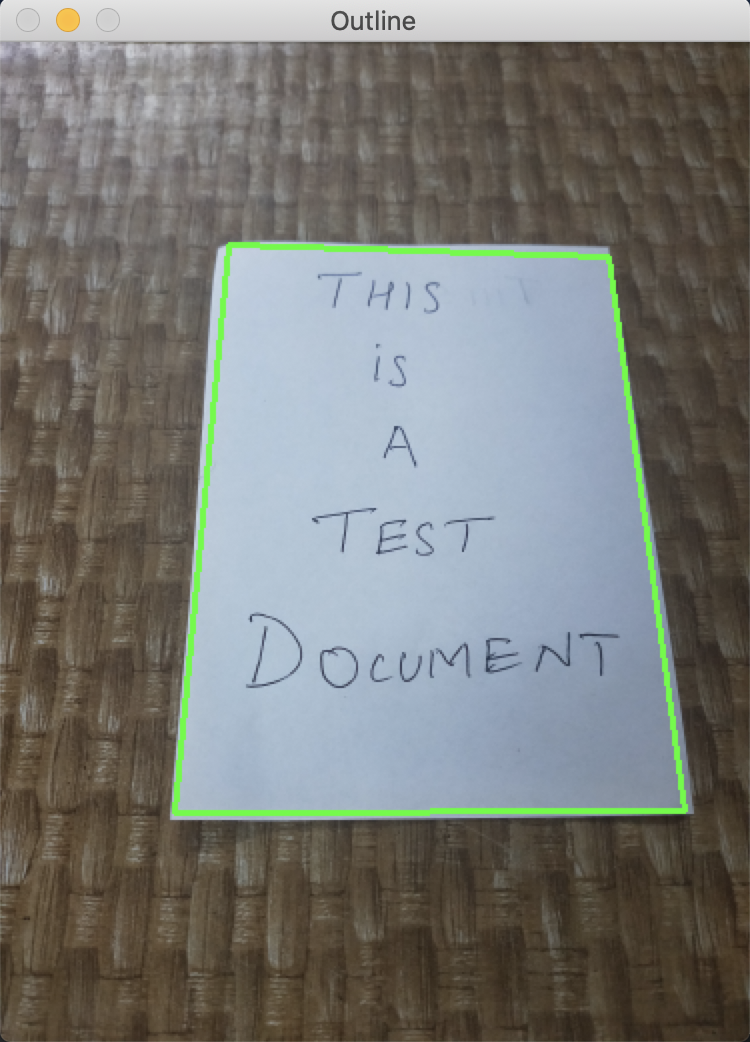 Outline
THIS
is
A
TEST
DOCUMENT